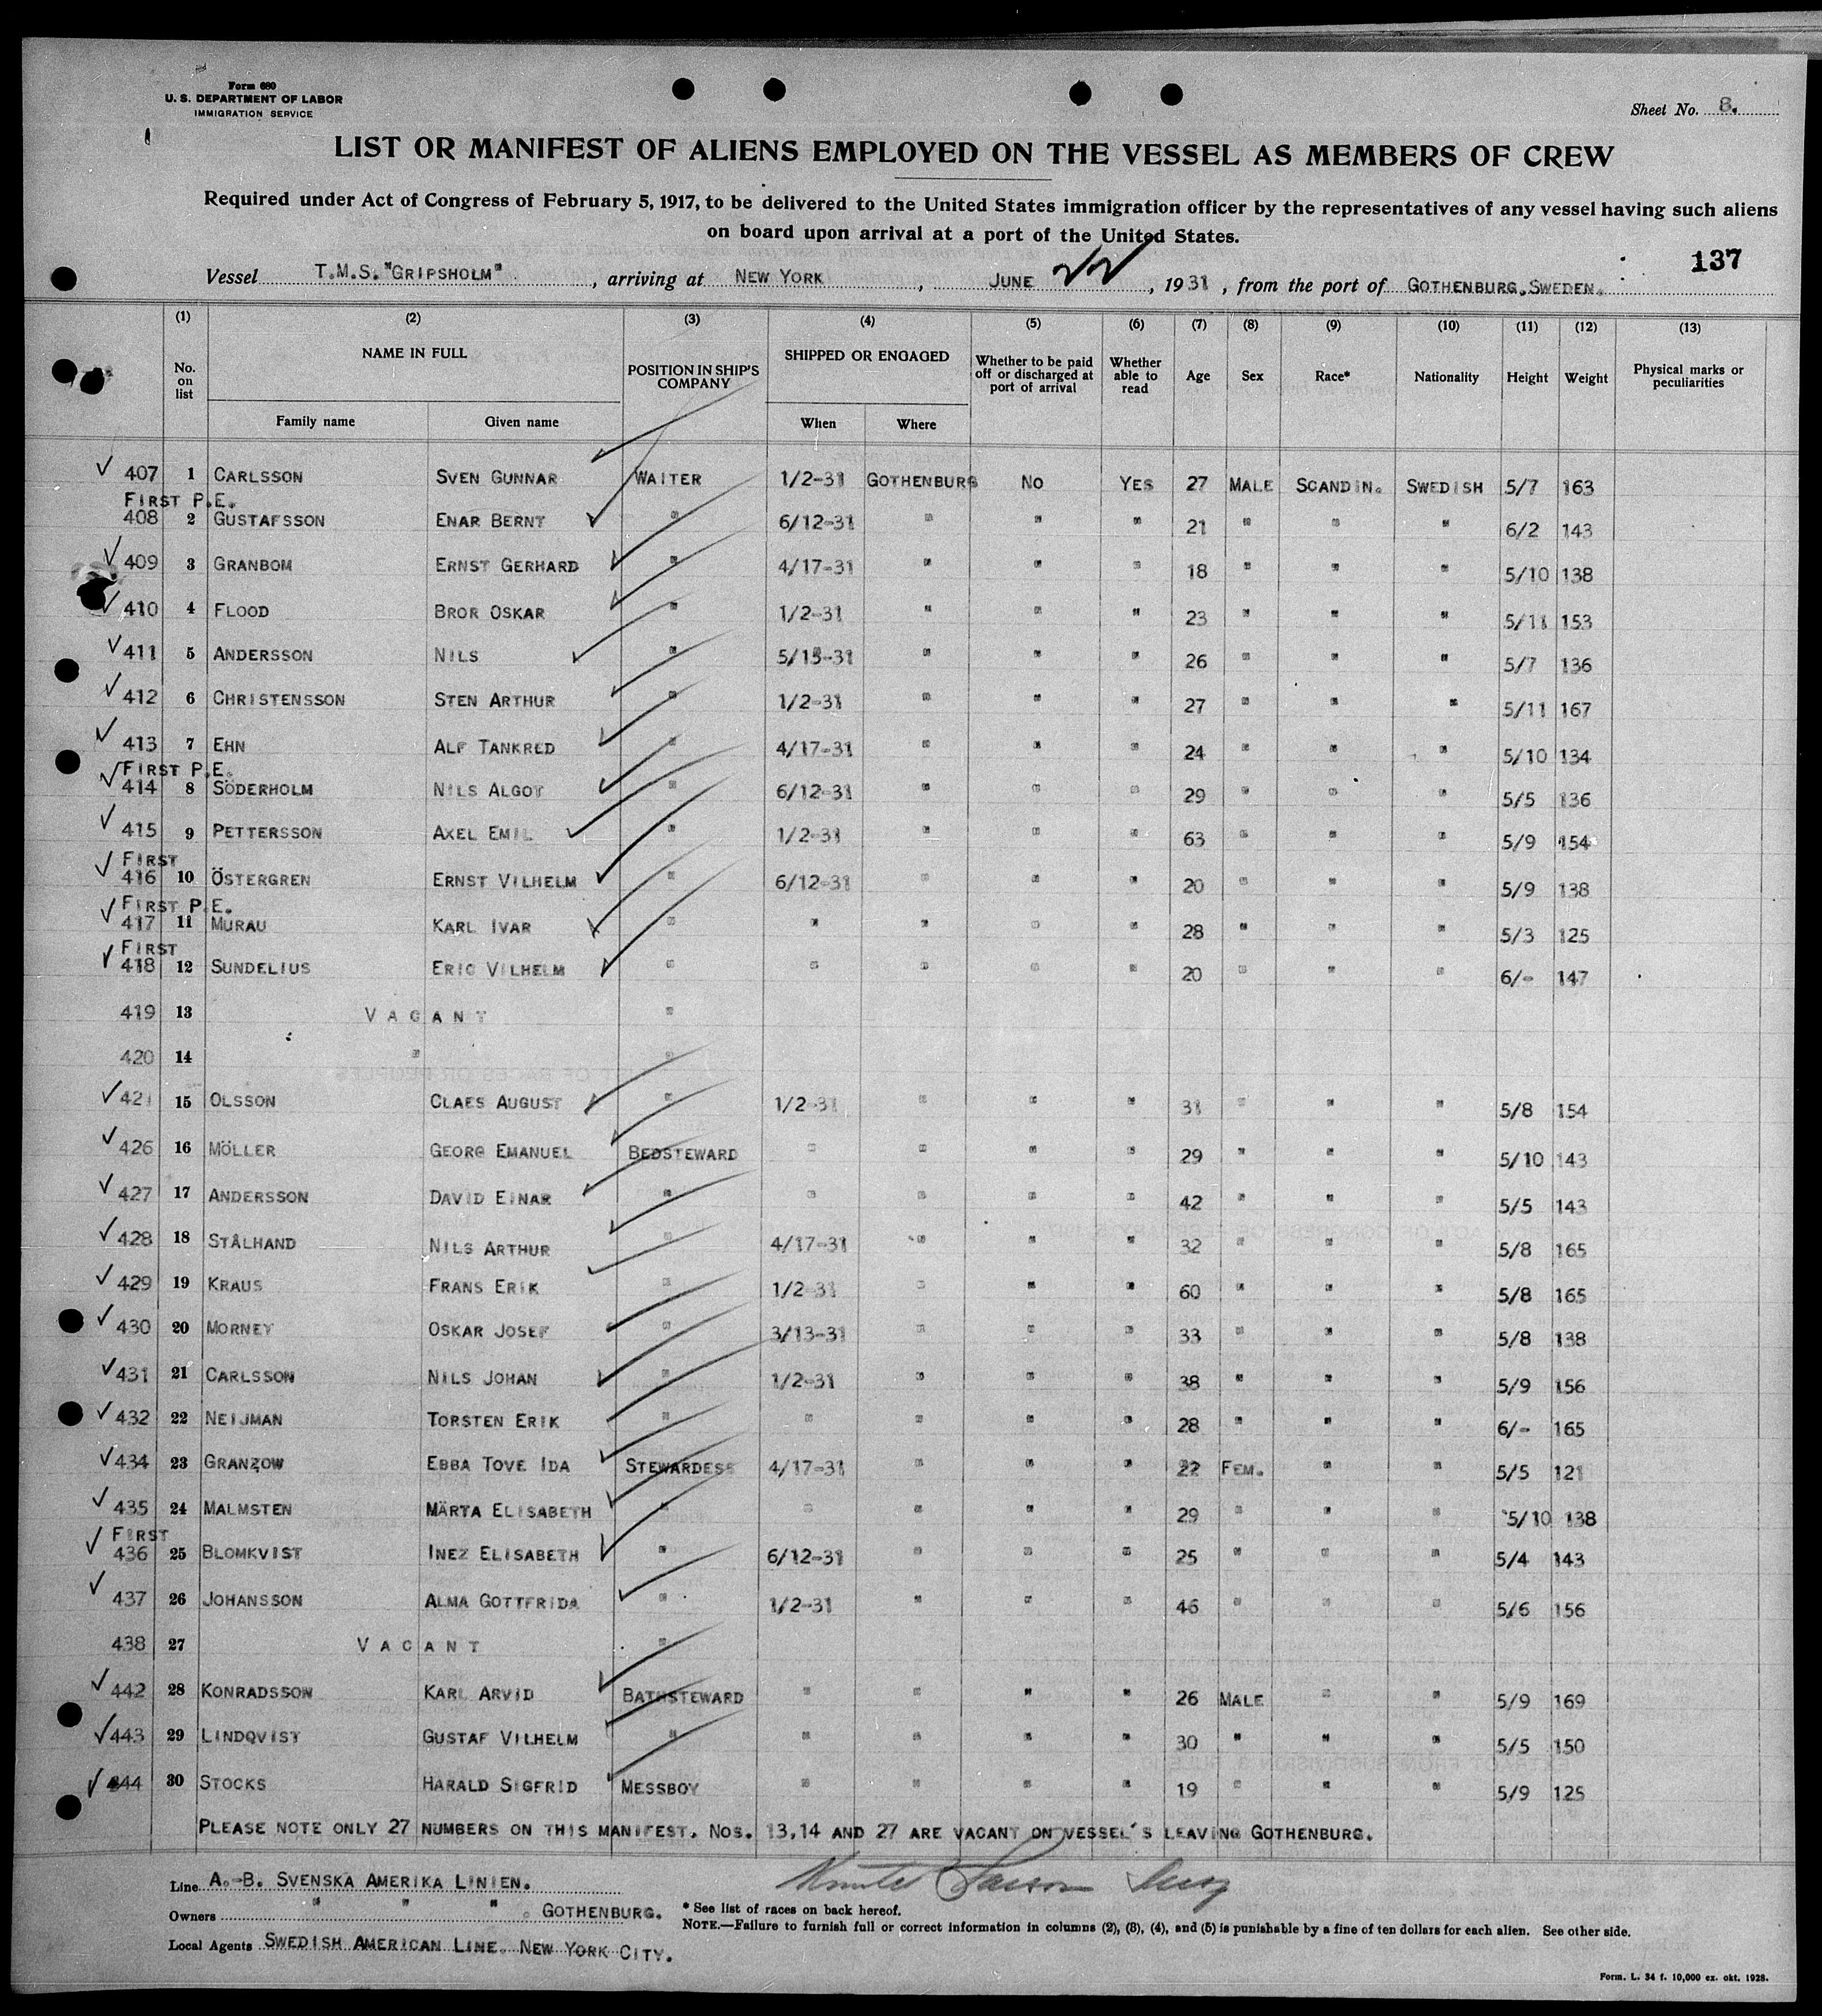 Form 680
U. S. DEPARTMENT OF LABOR
IMMIGRATION SERVICE
Sheet No. 8.
LIST OR MANIFEST OF ALIENS EMPLOYED ON THE VESSEL AS MEMBERS OF CREW
Required under Act of Congress of February 5, 1917, to be delivered to the United States immigration officer by the representatives of any vessel having such aliens
on board upon arrival at a port of the United States.
137
Vessel T.M.S. "GRIPSHOLM", arriving at NEW YORK, JUNE 22, 1931, from the port of GOTHENBURG, SWEDEN.
(1) (2) (3) (4) (5) (6) (7) (8) (9) (10) (11) (12) (13)
No. on list NAME IN FULL Family name Given name POSITION IN SHIP'S COMPANY SHIPPED OR ENGAGED When Where Whether to be paid off or discharged at port of arrival Whether able to read Age Sex Race* Nationality Height Weight Physical marks or peculiarities
✓ 407 1 CARLSSON SVEN GUNNAR WAITER 1/2-31 GOTHENBURG NO YES 27 MALE SCANDIN. SWEDISH 5/7 163
FIRST P.E.
408 2 GUSTAFSSON ENAR BERNT " 6/12-31 " " " 21 " " " 6/2 143
✓ 409 3 GRANBOM ERNST GERHARD " 4/17-31 " " " 18 " " " 5/10 138
✓ 410 4 FLOOD BROR OSKAR " 1/2-31 " " " 23 " " " 5/11 153
✓ 411 5 ANDERSSON NILS " 5/15-31 " " " 26 " " " 5/7 136
✓ 412 6 CHRISTENSSON STEN ARTHUR " 1/2-31 " " " 27 " " " 5/11 167
✓ 413 7 EHN ALF TANKRED " 4/17-31 " " " 24 " " " 5/10 134
FIRST P.E.
✓ 414 8 SÖDERHOLM NILS ALGOT " 6/12-31 " " " 29 " " " 5/5 136
✓ 415 9 PETTERSSON AXEL EMIL " 1/2-31 " " " 63 " " " 5/9 154
FIRST
✓ 416 10 ÖSTERGREN ERNST VILHELM " 6/12-31 " " " 20 " " " 5/9 138
FIRST P.E.
✓ 417 11 MURAU KARL IVAR " " " " " 28 " " " 5/3 125
FIRST
✓ 418 12 SUNDELIUS ERIC VILHELM " " " " " 20 " " " 6/- 147
419 13 VACANT "
420 14 " "
✓ 421 15 OLSSON CLAES AUGUST " 1/2-31 " " " 31 " " " 5/8 154
✓ 426 16 MÖLLER GEORG EMANUEL BEDSTEWARD " " " " 29 " " " 5/10 143
✓ 427 17 ANDERSSON DAVID EINAR " " " " " 42 " " " 5/5 143
✓ 428 18 STÅLHAND NILS ARTHUR " 4/17-31 " " " 32 " " " 5/8 165
✓ 429 19 KRAUS FRANS ERIK " 1/2-31 " " " 60 " " " 5/8 165
✓ 430 20 MORNEY OSKAR JOSEF " 3/13-31 " " " 33 " " " 5/8 138
✓ 431 21 CARLSSON NILS JOHAN " 1/2-31 " " " 38 " " " 5/9 156
✓ 432 22 NEIJMAN TORSTEN ERIK " " " " " 28 " " " 6/- 165
✓ 434 23 GRANZOW EBBA TOVE IDA STEWARDESS 4/17-31 " " " 22 FEM. " " 5/5 121
✓ 435 24 MALMSTEN MÄRTA ELISABETH " " " " " 29 " " " 5/10 138
FIRST
✓ 436 25 BLOMKVIST INEZ ELISABETH " 6/12-31 " " " 25 " " " 5/4 143
✓ 437 26 JOHANSSON ALMA GOTTFRIDA " 1/2-31 " " " 46 " " " 5/6 156
438 27 VACANT "
✓ 442 28 KONRADSSON KARL ARVID BATHSTEWARD " " " " 26 MALE " " 5/9 169
✓ 443 29 LINDQVIST GUSTAF VILHELM " " " " " 30 " " " 5/5 150
✓ 444 30 STOCKS HARALD SIGFRID MESSBOY " " " " 19 " " " 5/9 125
PLEASE NOTE ONLY 27 NUMBERS ON THIS MANIFEST. NOS. 13,14 AND 27 ARE VACANT ON VESSEL'S LEAVING GOTHENBURG.
Line A.-B. SVENSKA AMERIKA LINIEN.
Owners " " " . GOTHENBURG.
* See list of races on back hereof.
NOTE.—Failure to furnish full or correct information in columns (2), (3), (4), and (5) is punishable by a fine of ten dollars for each alien. See other side.
Local Agents SWEDISH AMERICAN LINE. NEW YORK CITY.
Form. L. 34 f. 10,000 ex. okt. 1928.